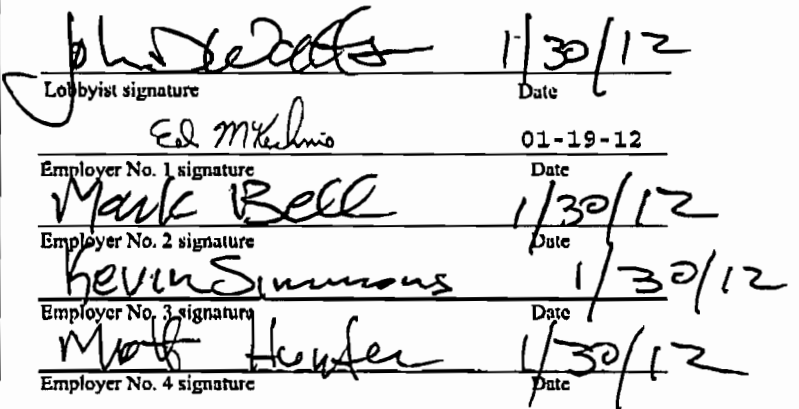 John 1/30/12
Lobbyist signature Date
Ed McKechnie 01-19-12
Employer No. 1 signature Date
Mark Bell 1/30/12
Employer No. 2 signature Date
Kevin Simmons 1/30/12
Employer No. 3 signature Date
Matt Hunter 1/30/12
Employer No. 4 signature Date